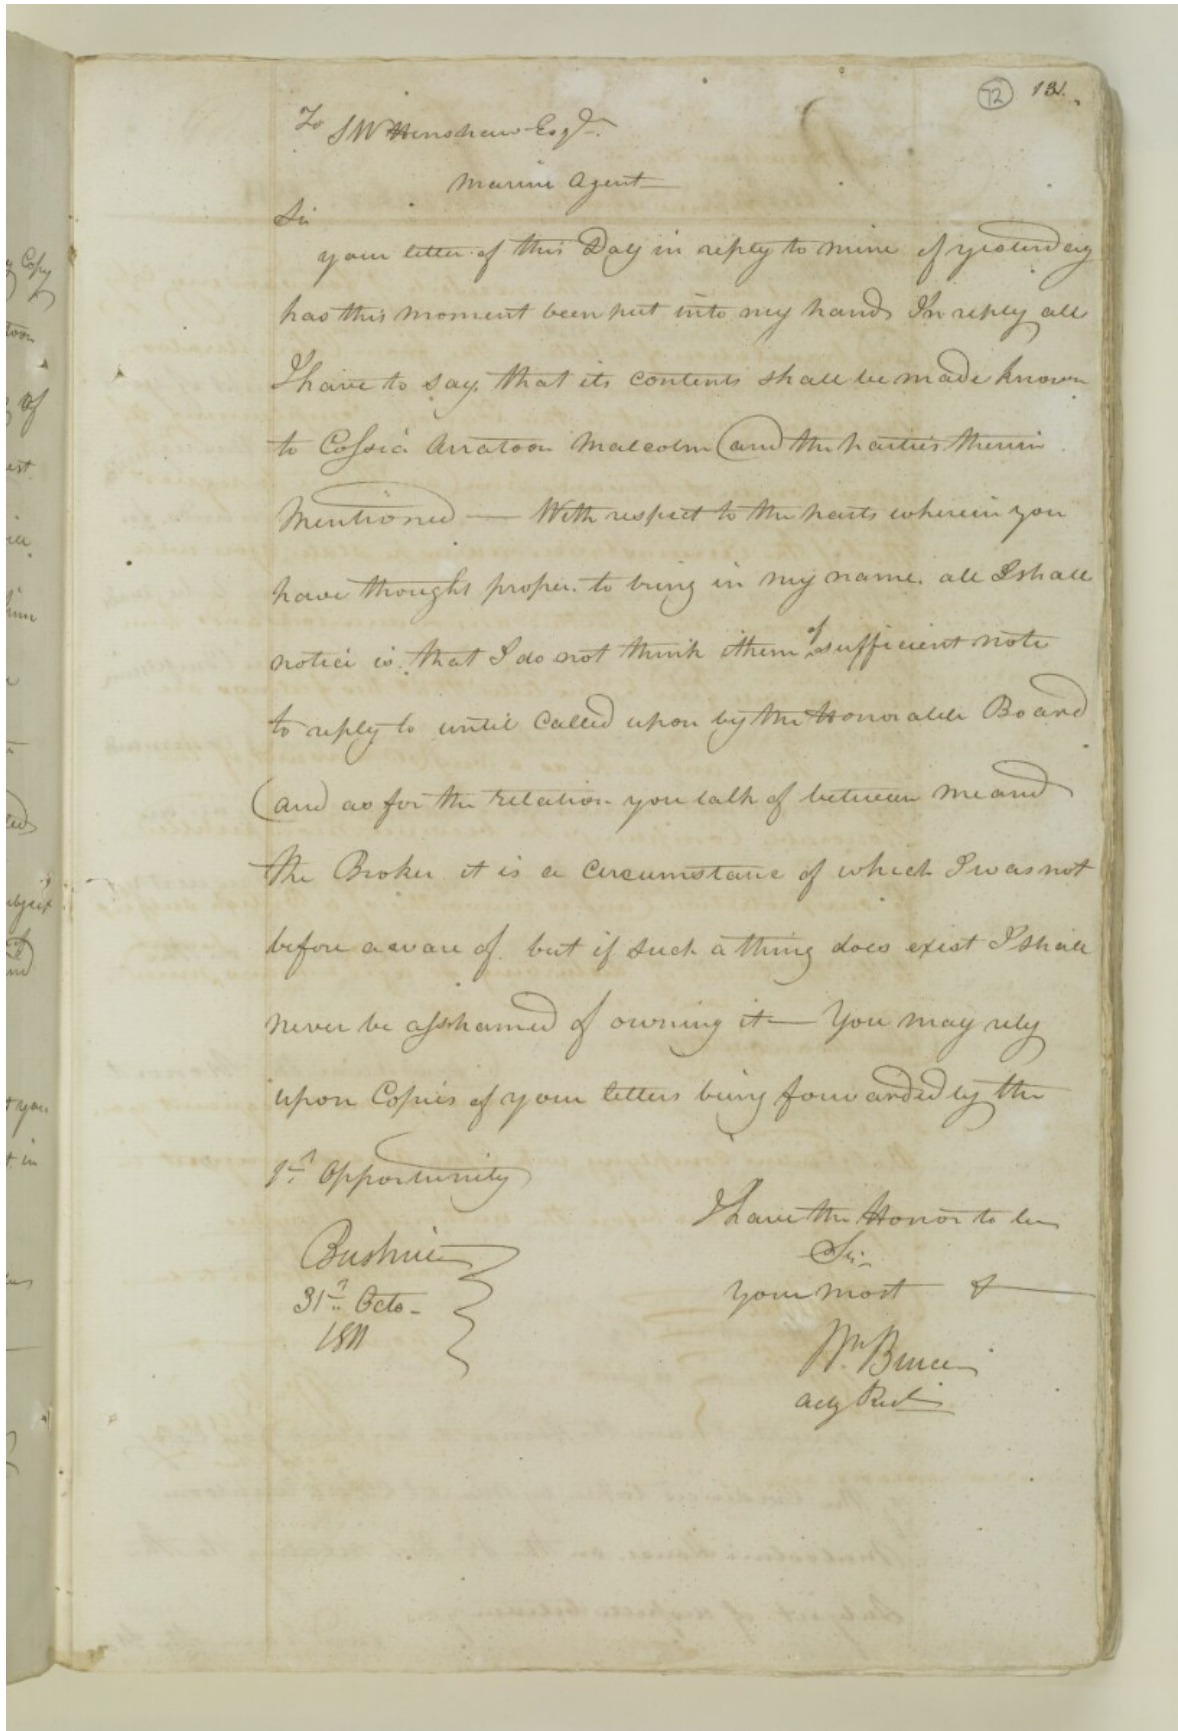 72 131.
To S W Henshaw Esqr.
Marine Agent
Sir
your letter of this Day in reply to mine of yesterday
has this moment been put into my hands In reply all
I have to say, that its contents shall be made known
to Cossia Arratoon Malcolm (and the parties therein
Mentioned — With respect to the parts wherein you
have thought proper. to bring in my name. all I shall
notice is. that I do not think them of sufficient note
to reply to until Called upon by the Honorable Board
(and as for the relation you talk of between me and
the Broker it is a Circumstance of which I was not
before aware of. but if Such a thing does exist I shall
never be asshamed of owning it — You may rely
upon Copies of your letters being forwarded by the
1st Opportunity
I have the Honor to be
Sir
your most &
Wm. Bruce
Actg Resdt
Bushire
31st Octo-
1811